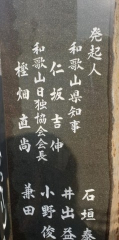 発起人
和歌山県知事
仁坂吉伸
和歌山日独協会会長
樫畑直尚
石垣泰
井出益
小野俊
兼田